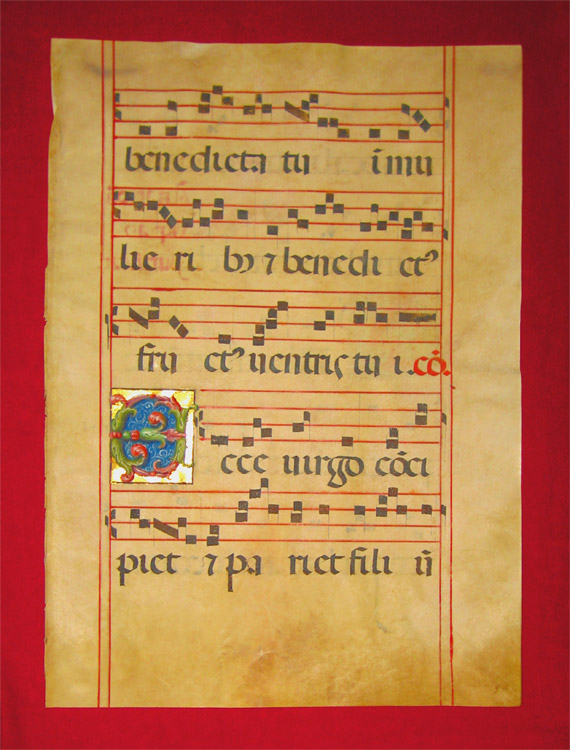 benedicta tu īmu
lie ri bꝰ ⁊ benedi ctꝰ
fru ctꝰ uentris tu i. cō.
Ecce uirgo cōci
piet ⁊ pa riet fili ū